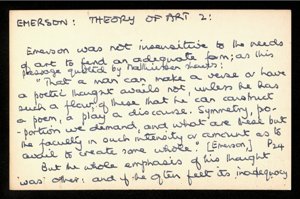 EMERSON: THEORY OF ART 2:
Emerson was not insensitive to the needs
of art to find an adequate form; as this
passage quoted by Matthiessen shows:
"That a man can make a verse or have
a poetic thought avails not, unless he has
such a flow of these that he can construct
a poem, a play a discourse. Symmetry, pro-
-portion we demand, and what are these but
the faculty in such intensity or amount as to
avail to create some whole." [Emerson,] P24
But the whole emphasis of his thought
was other: and if he often felt its inadequacy